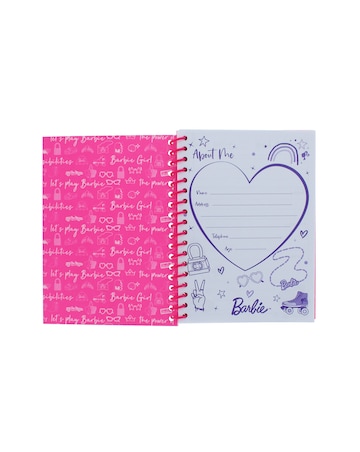 let's play Barbie
Barbie Girl!
The power
ibilities
let's play Barbie
Barbie Girl!
The power
ibilities
let's play Barbie
Barbie Girl!
The power
ibilities
let's play Barbie
Barbie Girl!
The power
About Me
Name
Address
Telephone
Age
Barbie
Barbie